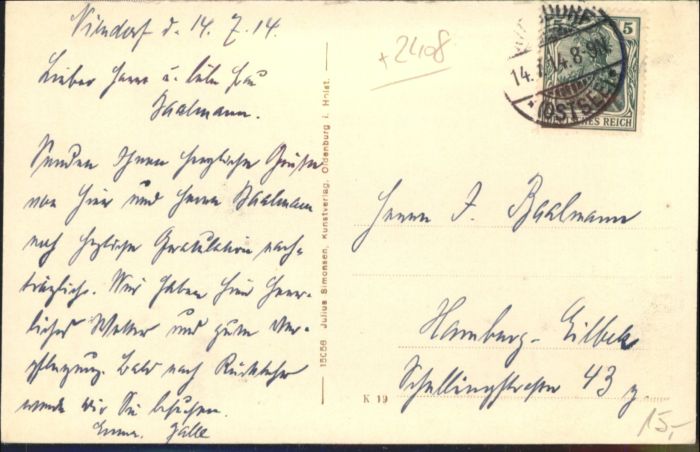 Niendorf d. 14. 7. 14.
Lieber Herr u. liebe Frau
Baalmann.
Senden Ihnen herzliche Grüße
von hier und Herrn Baalmann
noch herzliche Gratulation nach-
träglich. Wir haben hier herr-
liches Wetter und gute Ver-
pflegung. Bald nach Rückkehr
werde wir Sie besuchen.
+2408
5
14.7.14.8-9N.
*(OSTSEE)*
DEUTSCHES REICH
15058 Julius Simonsen, Kunstverlag, Oldenburg i. Holst.
Herrn J. Baalmann
Hamburg-Eilbek
Schellingstrasse 43
K 19
15,-